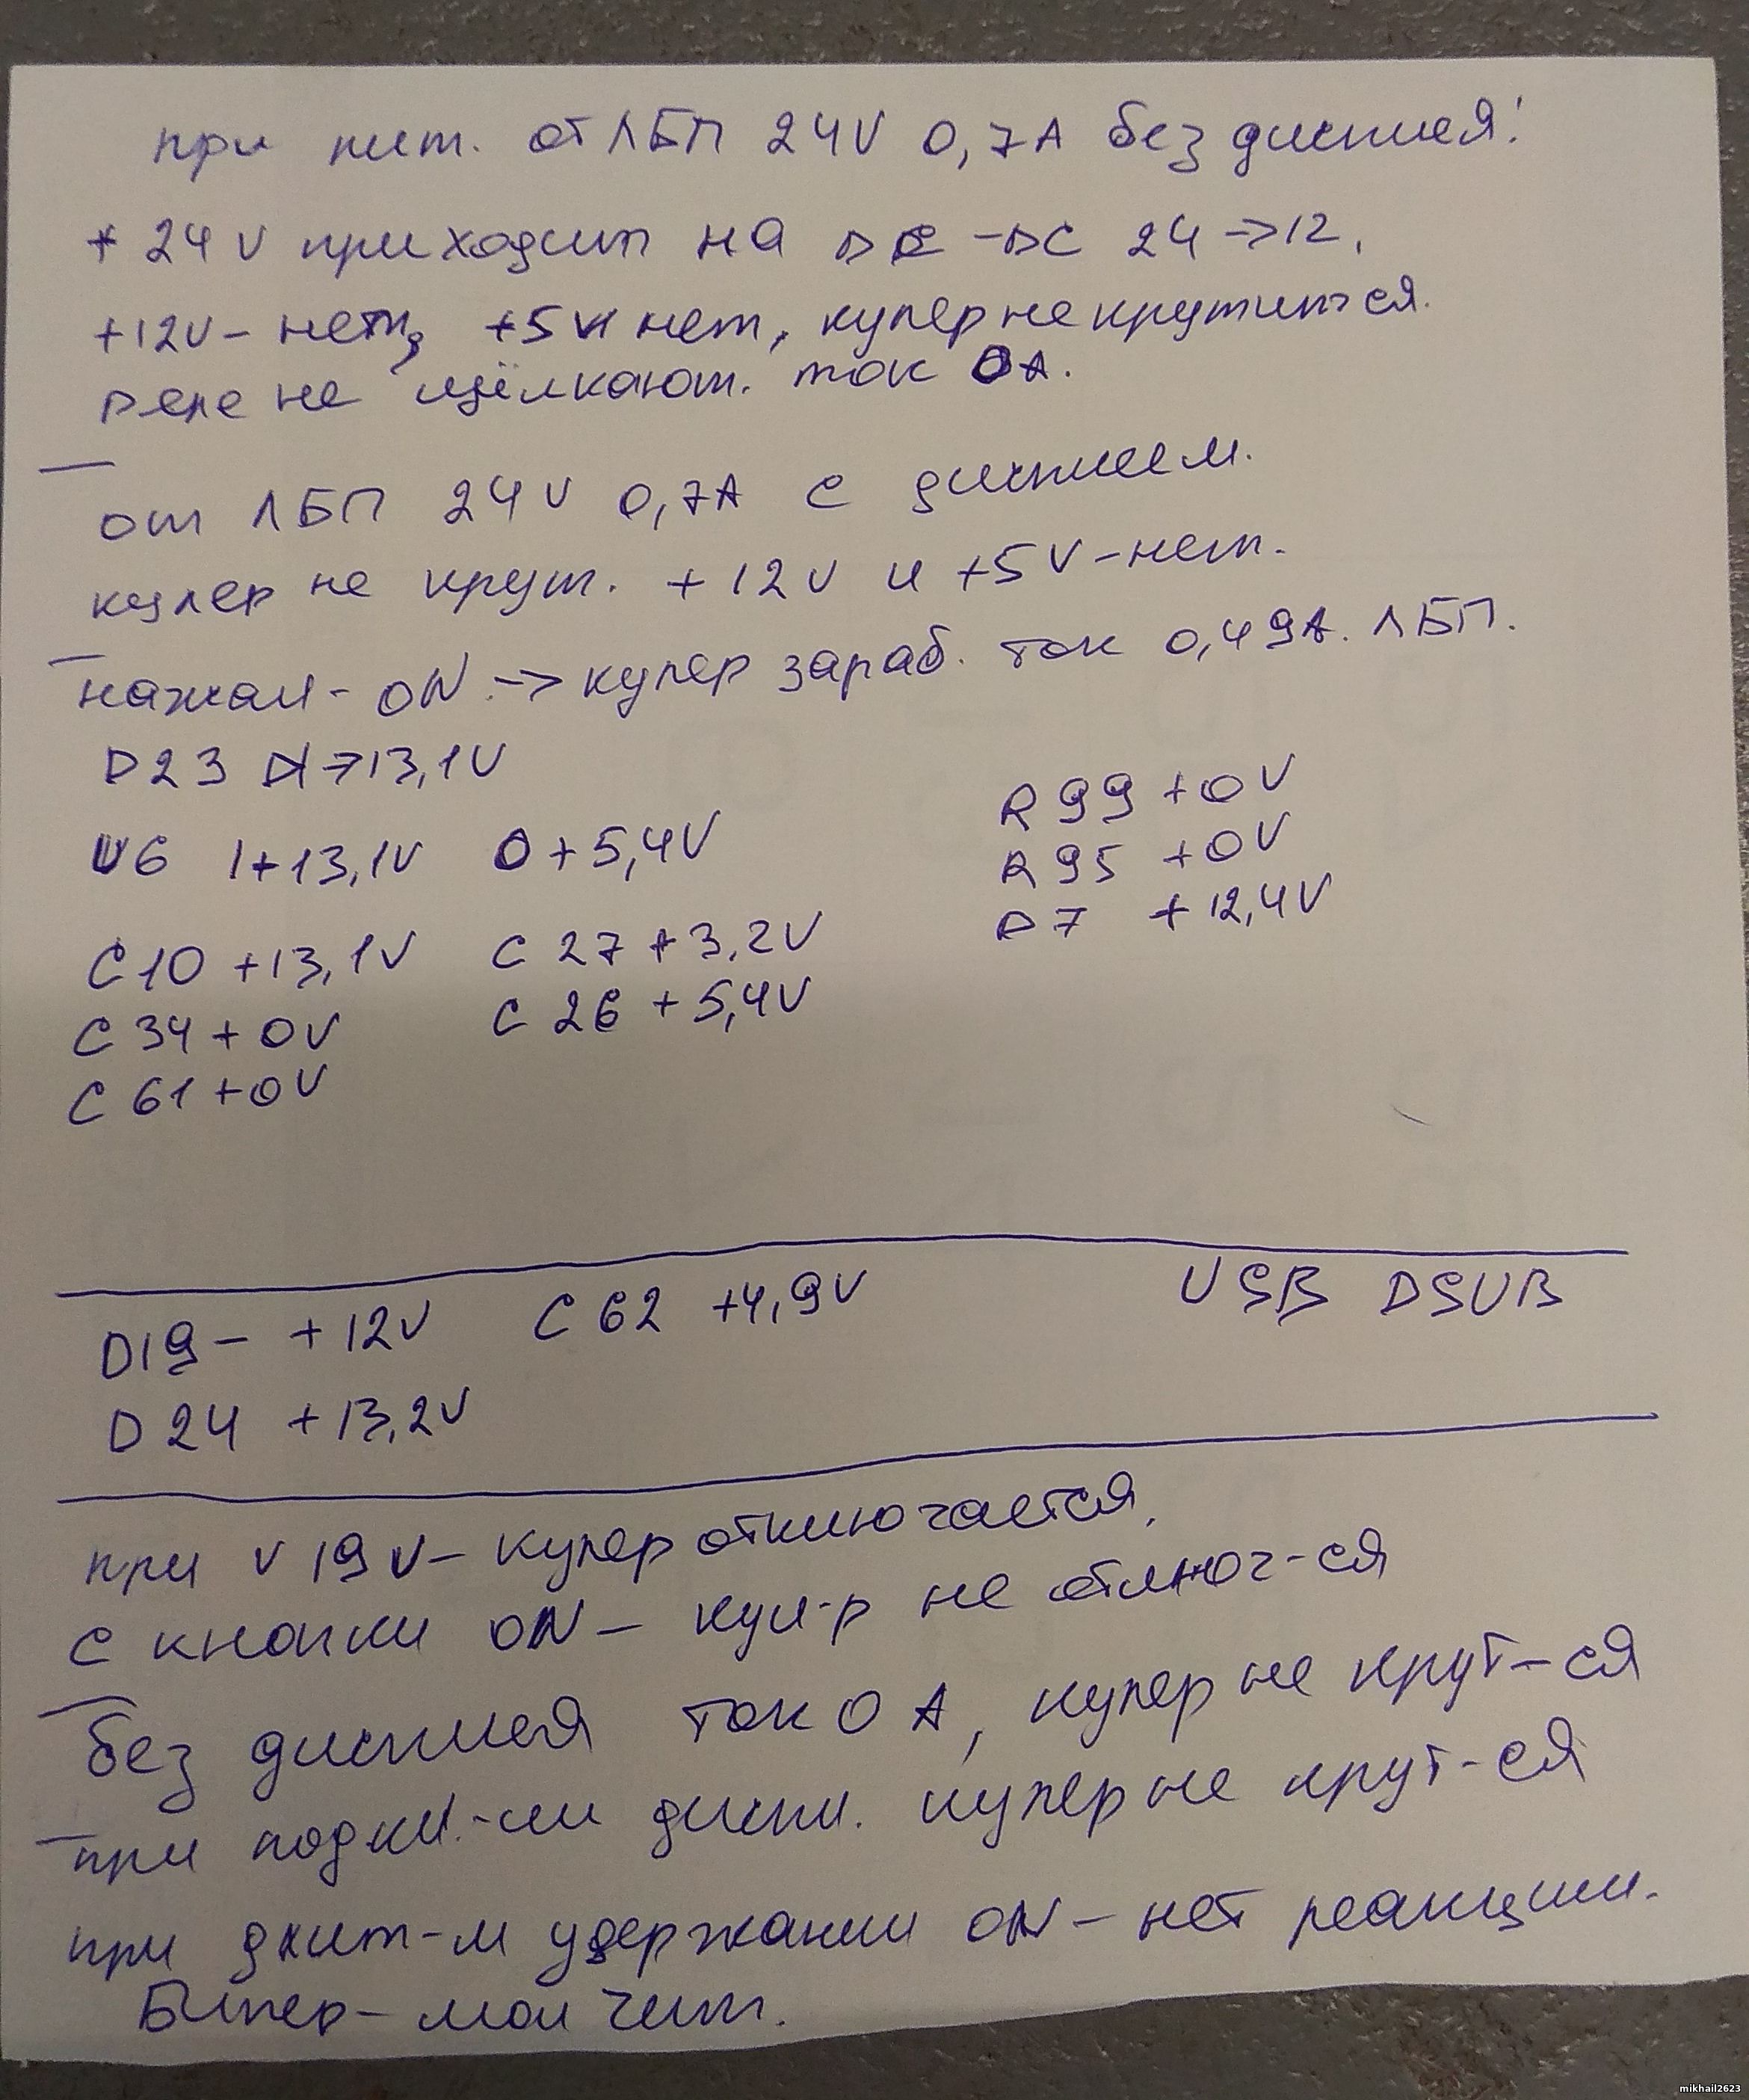 при пит. от ЛБП 24V 0,7А без дисплея!
+24V приходит на DC-DC 24→12.
+12V- нет, +5V нет, кулер не крутится.
Реле не щёлкают. ток 0А.
от ЛБП 24V 0,7А с дисплеем.
кулер не крут. +12V и +5V-нет.
нажал- ON → кулер зараб. ток 0,49А. ЛБП.
D23 →13,1V
R99 +0V
U6 I+13,1V O+5,4V
R95 +0V
D7 +12,4V
C10 +13,1V C27+3,2V
C34+0V C26+5,4V
C61+0V
D19- +12V C62 +4,9V USB DSUB
D24 +13,2V
при V 19V- кулер отключается,
с кнопки ON- кул-р не отключ-ся
без дисплея ток 0А, кулер не крут-ся
при подкл.-ии диспл. кулер не крут-ся
при длит-м удержании ON- нет реакции.
Бипер- молчит.
mikhail2623